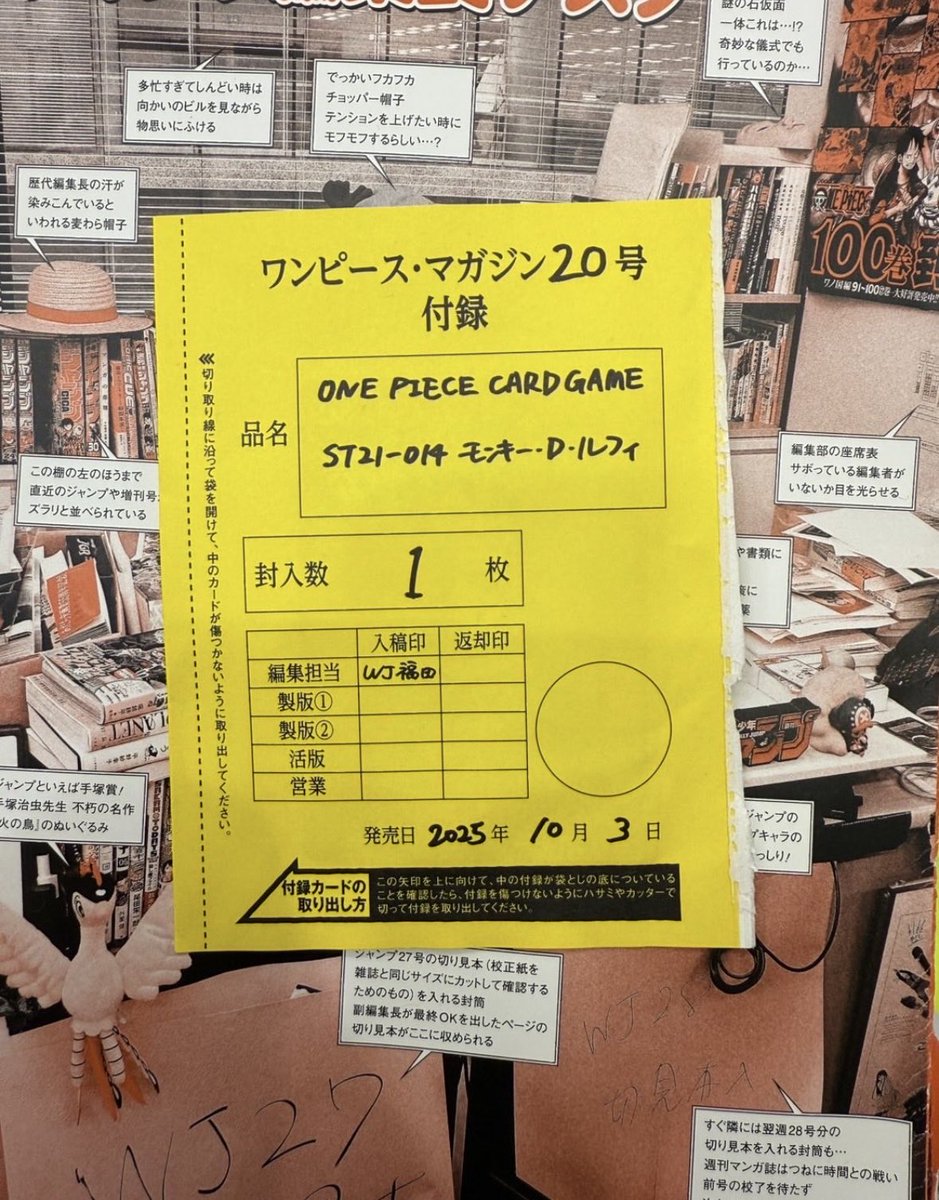 謎の石仮面
一体これは…!?
奇妙な儀式でも
行っているのか…
多忙すぎてしんどい時は
向かいのビルを見ながら
物思いにふける
でっかいフカフカ
チョッパー帽子
テンションを上げたい時に
モフモフするらしい…?
歴代編集長の汗が
染みこんでいると
いわれる麦わら帽子
ONE PIECE
100巻
ワノ国編 91~100巻 大好評発売中!!
ワンピース・マガジン20号
付録
品名
ONE PIECE CARD GAME
ST21-014 モンキー・D・ルフィ
封入数 1 枚
入稿印 返却印
編集担当 WJ福田
製版①
製版②
活版
営業
発売日 2025年 10月 3日
付録カードの
取り出し方
この矢印を上に向けて、中の付録が袋とじの底についている
ことを確認したら、付録を傷つけないようにハサミやカッターで
切って付録を取り出してください。
≪切り取り線に沿って袋を開けて、中のカードが傷つかないように取り出してください。
この棚の左のほうまで
直近のジャンプや増刊号
ズラリと並べられている
編集部の座席表
サボっている編集者が
いないか目を光らせる
や書類に
に
薬
少年
ジャンプ
ジャンプといえば手塚賞!
手塚治虫先生 不朽の名作
『火の鳥』のぬいぐるみ
ジャンプの
プキャラの
っしり!
ジャンプ27号の切り見本(校正紙を
雑誌と同じサイズにカットして確認する
ためのもの)を入れる封筒
副編集長が最終OKを出したページの
切り見本がここに収められる
WJ27
WJ28
切見本入
すぐ隣には翌週28号分の
切り見本を入れる封筒も…
週刊マンガ誌はつねに時間との戦い
前号の校了を待たず